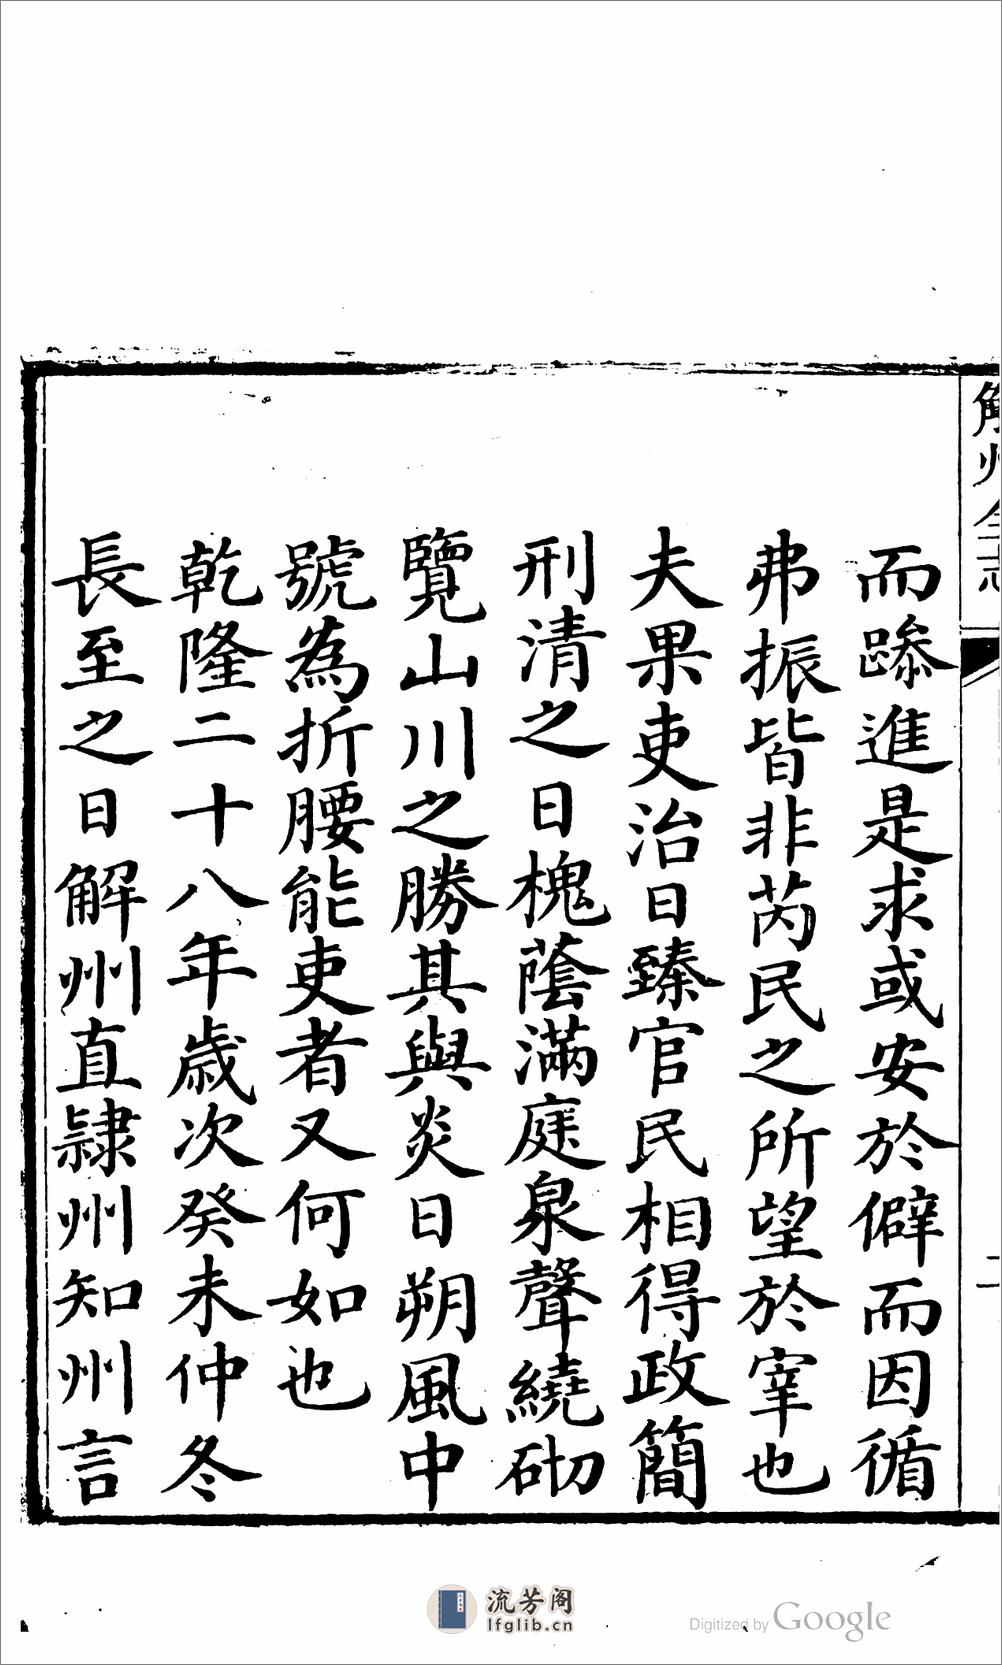 解州全志
二
而躁進是求或安於僻而因循
弗振皆非芮民之所望於宰也
夫果吏治日臻官民相得政簡
刑清之日槐蔭滿庭泉聲繞砌
覽山川之勝其與炎日朔風中
號為折腰能吏者又何如也
乾隆二十八年歲次癸未仲冬
長至之日解州直隷州知州言
流芳阁
lfglib.cn
Digitized by Google